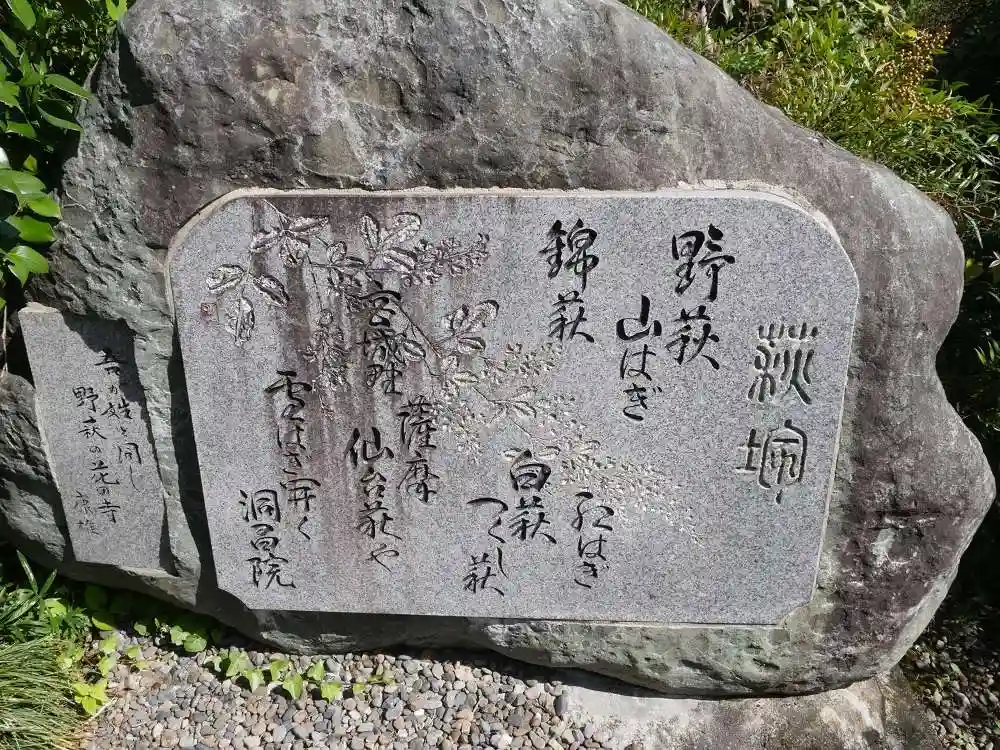 萩埦
野萩
山はぎ
錦萩
紅はぎ
白萩
つくし萩
宮城野
薩摩
仙台萩や
雪はぎ開く
洞昌院
吾が姓と同じ
野萩の花の寺